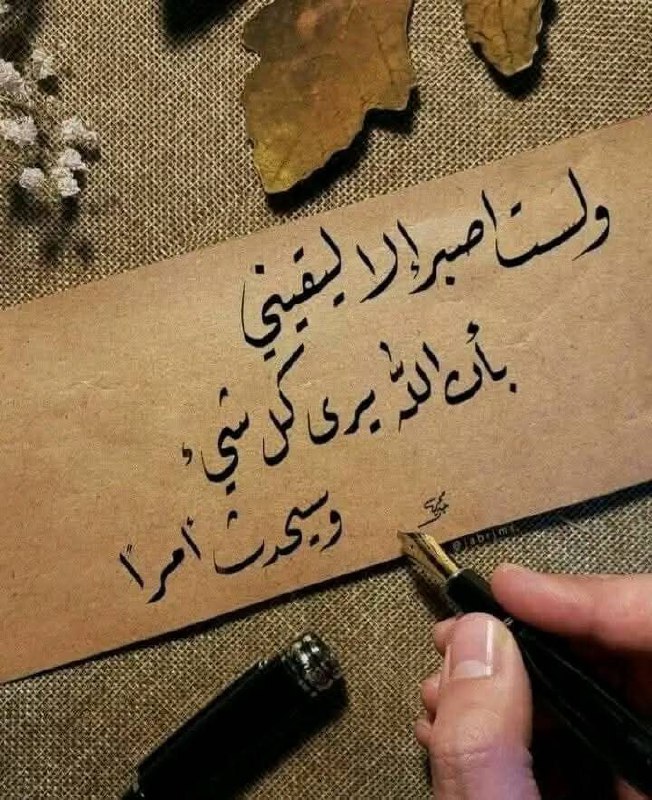 ولست اصبر إلا ليقيني
بأن الله يرى كل شيء
وسيحدث أمرًا
@jabrjms